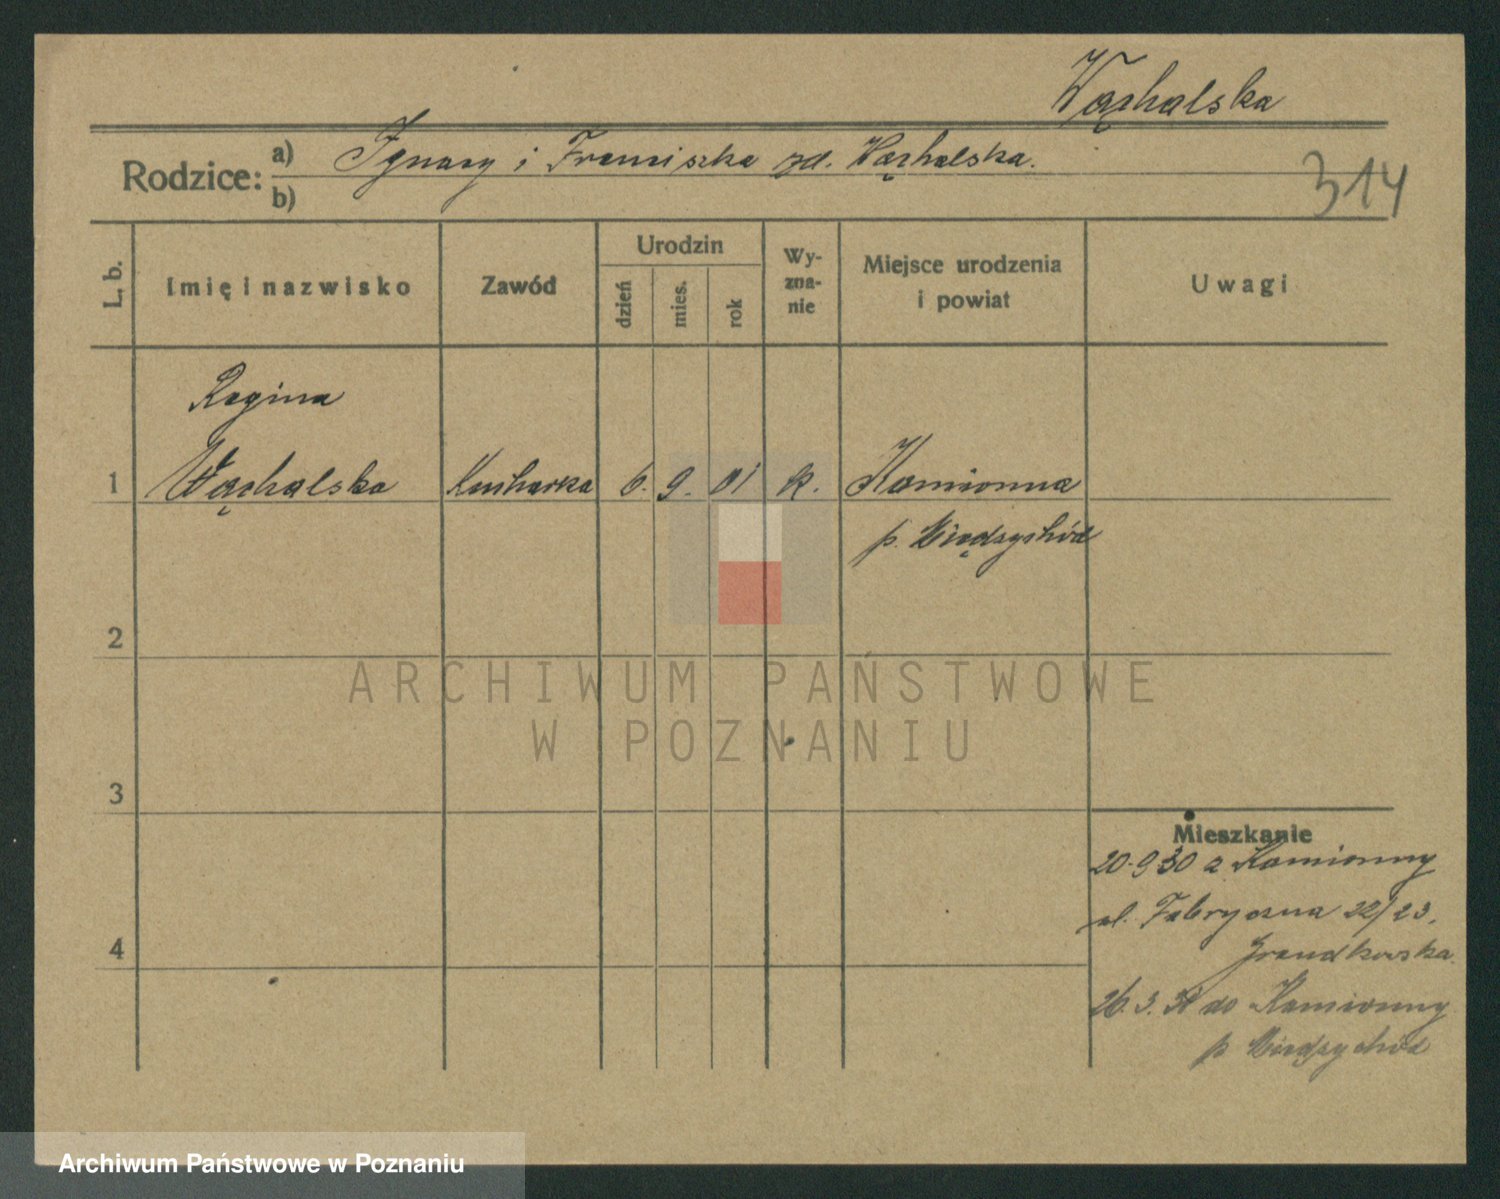 Wąchalska
Rodzice: a) Ignacy i Franciszka zd. Wąchalska.
b)
314
L. b. Imię i nazwisko Zawód Urodzin dzień mies. rok Wy-zna-nie Miejsce urodzenia i powiat Uwagi
Regina
1 Wąchalska Kucharka 6. 9. 01 k. Kamionna
p. Międzychód
2
ARCHIWUM PAŃSTWOWE
W POZNANIU
3
Mieszkanie
20.9 30 z Kamionny
ul. Fabryczna 22/23.
4
26. 3. 31 do Kamionny
p. Międzychód
Archiwum Państwowe w Poznaniu